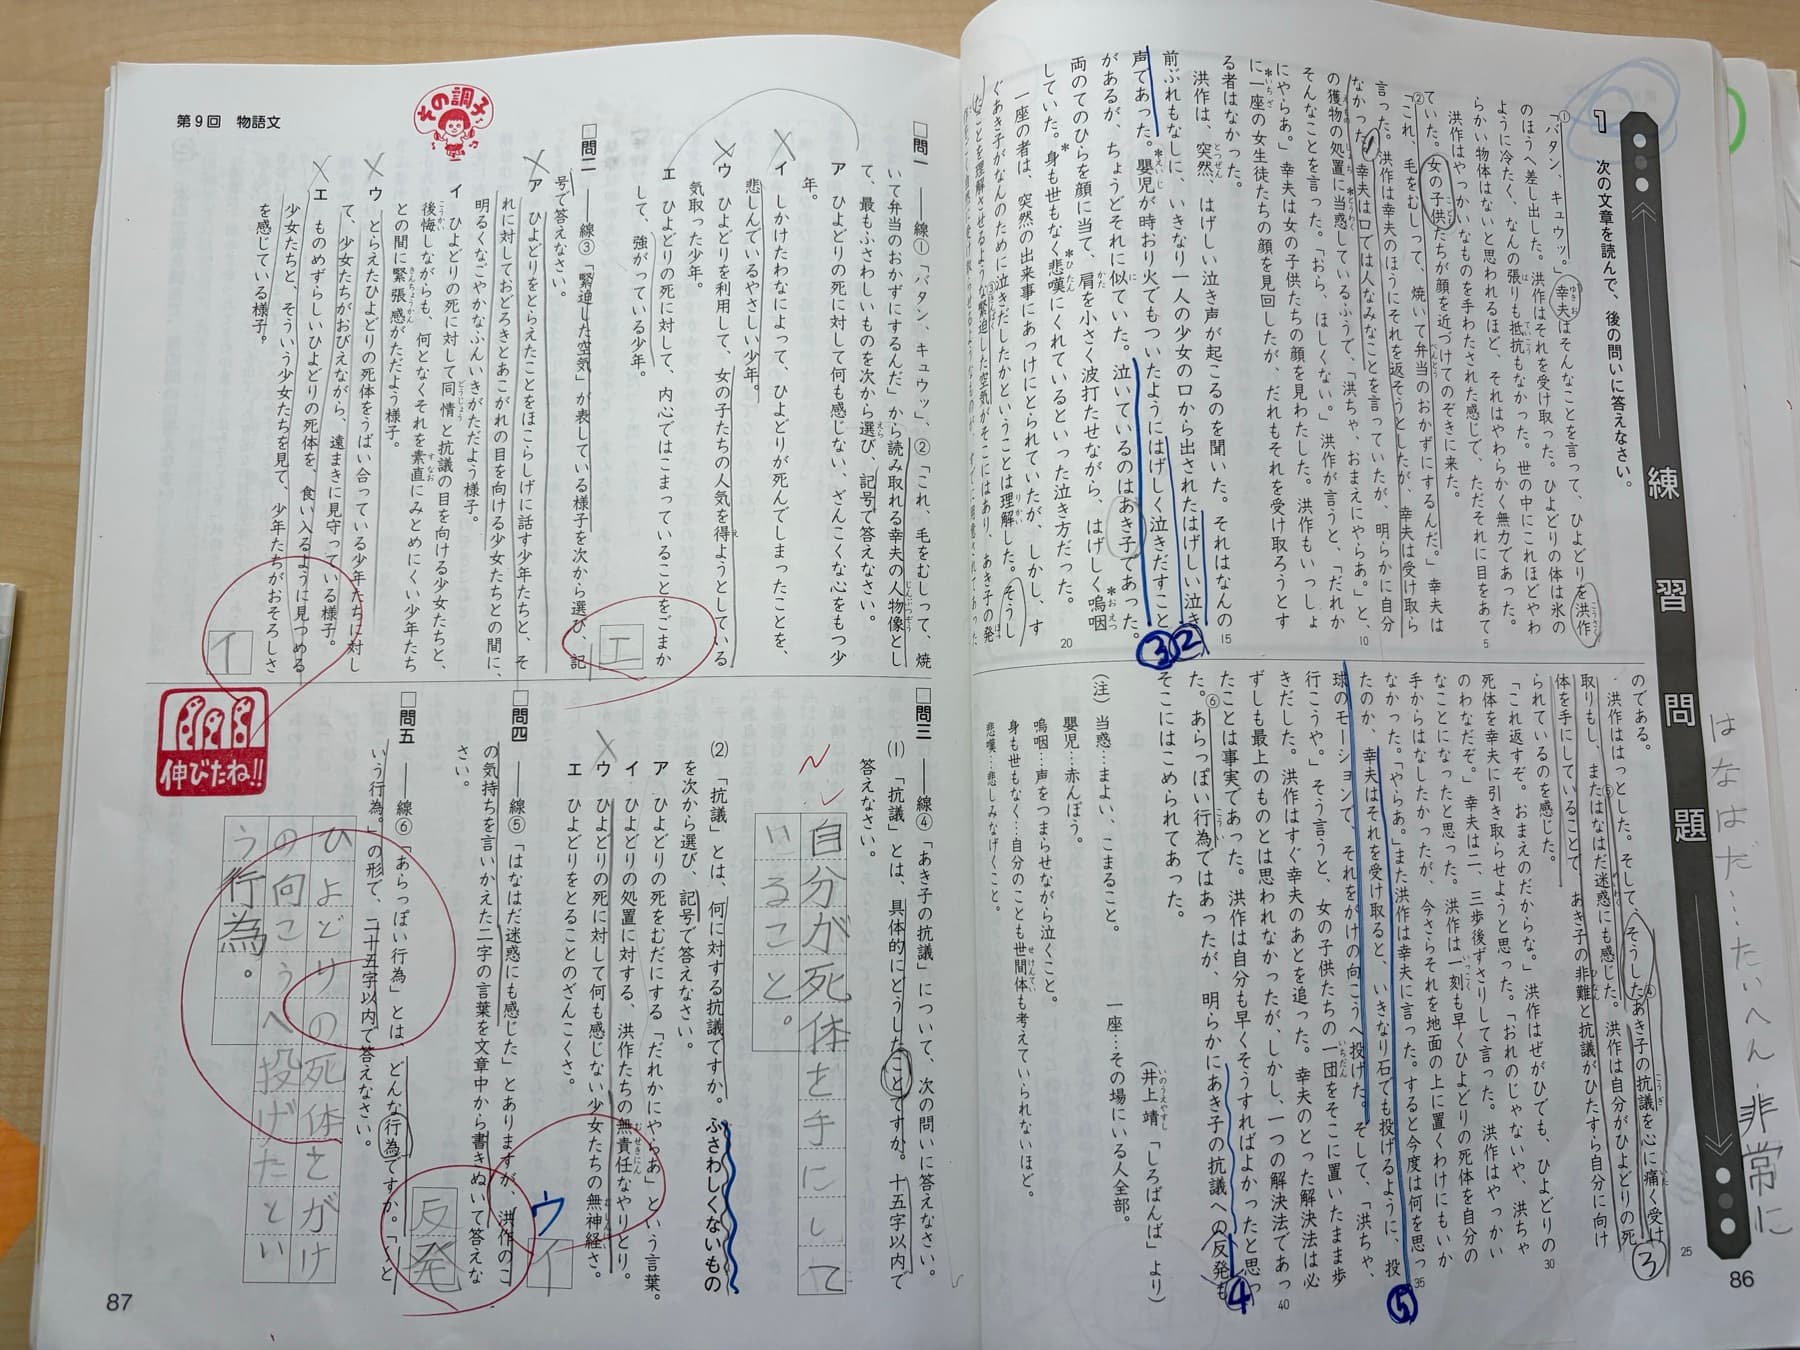 1 次の文章を読んで、後の問いに答えなさい。
練習問題
①「バタン、キュウッ。」幸夫はそんなことを言って、ひよどりを洪作
のほうへ差し出した。洪作はそれを受け取った。ひよどりの体は氷の
ように冷たく、なんの張りも抵抗もなかった。世の中にこれほどやわ
らかい物体はないと思われるほど、それはやわらかく無力であった。
洪作はやっかいなものを手わたされた感じで、ただそれに目をあて
ていた。女の子供たちが顔を近づけてのぞきに来た。
②「これ、毛をむしって、焼いて弁当のおかずにするんだ。」幸夫は
言った。洪作は幸夫のほうにそれを返そうとしたが、幸夫は受け取ら
なかった。幸夫は口では人なみなことを言っていたが、明らかに自分
の獲物の処置に*当惑しているふうで、「洪ちゃ、おまえにやらあ。」と、
そんなことを言った。「おら、ほしくない。」洪作が言うと、「だれか
にやらあ。」幸夫は女の子供たちの顔を見わたした。洪作もいっしょ
に*一座の女生徒たちの顔を見回したが、だれもそれを受け取ろうとす
る者はなかった。
洪作は、突然、はげしい泣き声が起こるのを聞いた。それはなんの
前ぶれもなしに、いきなり一人の少女の口から出されたはげしい泣き
声であった。*嬰児が時おり火でもついたようにはげしく泣きだすこと
があるが、ちょうどそれに似ていた。泣いているのはあき子であった。
両のてのひらを顔に当て、肩を小さく波打たせながら、はげしく*嗚咽
していた。*身も世もなく*悲嘆にくれているといった泣き方だった。
一座の者は、突然の出来事にあっけにとられていたが、しかし、す
ぐあき子がなんのために泣きだしたかということは理解した。そうし
たことを理解させるような③緊迫した空気がそこにはあり、あき子の発
のである。
洪作ははっとした。そして、そうした④あき子の抗議を心に痛く受け
取りもし、また⑤はなはだ迷惑にも感じた。洪作は自分がひよどりの死
体を手にしていることで、あき子の非難と抗議がひたすら自分に向け
られているのを感じた。
「これ返すぞ。おまえのだからな。」洪作はぜがひでも、ひよどりの
死体を幸夫に引き取らせようと思った。「おれのじゃないや、洪ちゃ
のわなだぞ。」幸夫は二、三歩後ずさりして言った。洪作はやっかい
なことになったと思った。洪作は一刻も早くひよどりの死体を自分の
手からはなしたかったが、今さらそれを地面の上に置くわけにもいか
なかった。「やらあ。」また洪作は幸夫に言った。すると今度は何を思っ
たのか、幸夫はそれを受け取ると、いきなり石でも投げるように、投
球のモーションで、それをがけの向こうへ投げた。そして、「洪ちゃ、
行こうや。」そう言うと、女の子供たちの一団をそこに置いたまま歩
きだした。洪作はすぐ幸夫のあとを追った。幸夫のとった解決法は必
ずしも最上のものとは思われなかったが、しかし、一つの解決法であっ
たことは事実であった。洪作は自分も早くそうすればよかったと思っ
た。⑥あらっぽい行為ではあったが、明らかにあき子の抗議への反発も
そこにはこめられてあった。
（井上靖「しろばんば」より）
（注）当惑…まよい、こまること。
一座…その場にいる人全部。
嬰児…赤んぼう。
嗚咽…声をつまらせながら泣くこと。
身も世もなく…自分のことも世間体も考えていられないほど。
悲嘆…悲しみなげくこと。
はなはだ…たいへん・非常に
③
②
③
④
⑤
5
10
15
20
25
30
35
40
86
□問一 ――線①「バタン、キュウッ」、②「これ、毛をむしって、焼
いて弁当のおかずにするんだ」から読み取れる幸夫の人物像とし
て、最もふさわしいものを次から選び、記号で答えなさい。
ア ひよどりの死に対して何も感じない、ざんこくな心をもつ少
年。
イ しかけたわなによって、ひよどりが死んでしまったことを、
悲しんでいるやさしい少年。
ウ ひよどりを利用して、女の子たちの人気を得ようとしている
気取った少年。
エ ひよどりの死に対して、内心ではこまっていることをごまか
して、強がっている少年。
エ
□問二 ――線③「緊迫した空気」が表している様子を次から選び、記
号で答えなさい。
ア ひよどりをとらえたことをほこらしげに話す少年たちと、そ
れに対しておどろきとあこがれの目を向ける少女たちとの間に、
明るくなごやかなふんいきがただよう様子。
イ ひよどりの死に対して同情と抗議の目を向ける少女たちと、
後悔しながらも、何となくそれを素直にみとめにくい少年たち
との間に緊張感がただよう様子。
ウ とらえたひよどりの死体をうばい合っている少年たちに対し
て、少女たちがおびえながら、遠まきに見守っている様子。
エ ものめずらしいひよどりの死体を、食い入るように見つめる
少女たちと、そういう少女たちを見て、少年たちがおそろしさ
を感じている様子。
イ
□問三 ――線④「あき子の抗議」について、次の問いに答えなさい。
(1)「抗議」とは、具体的にどうしたことですか。十五字以内で
答えなさい。
自分が死体を手にして
いること。
(2)「抗議」とは、何に対する抗議ですか。ふさわしくないもの
を次から選び、記号で答えなさい。
ア ひよどりの死をむだにする「だれかにやらあ」という言葉。
イ ひよどりの処置に対する、洪作たちの無責任なやりとり。
ウ ひよどりの死に対して何も感じない少女たちの無神経さ。
エ ひよどりをとることのざんこくさ。
ウ
イ
□問四 ――線⑤「はなはだ迷惑にも感じた」とありますが、洪作のこ
の気持ちを言いかえた二字の言葉を文章中から書きぬいて答えな
さい。
反発
□問五 ――線⑥「あらっぽい行為」とは、どんな行為ですか。「〜と
いう行為。」の形で、二十五字以内で答えなさい。
ひよどりの死体をがけ
の向こうへ投げたとい
う行為。
その調子
伸びたね!!
第9回 物語文
87